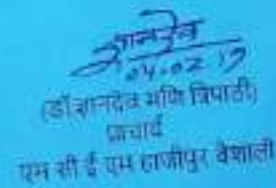 ज्ञानदेव
04.02.19
(डॉ ज्ञानदेव मणि त्रिपाठी)
प्राचार्य
एम सी ई एम हाजीपुर वैशाली